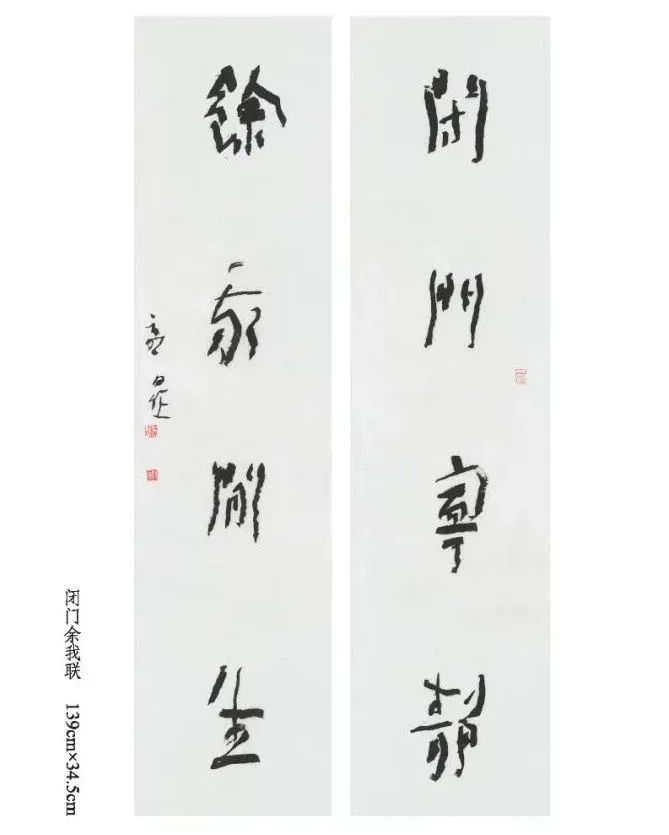 閉門寧靜
餘我閒生
闭门余我联 139cm×34.5cm